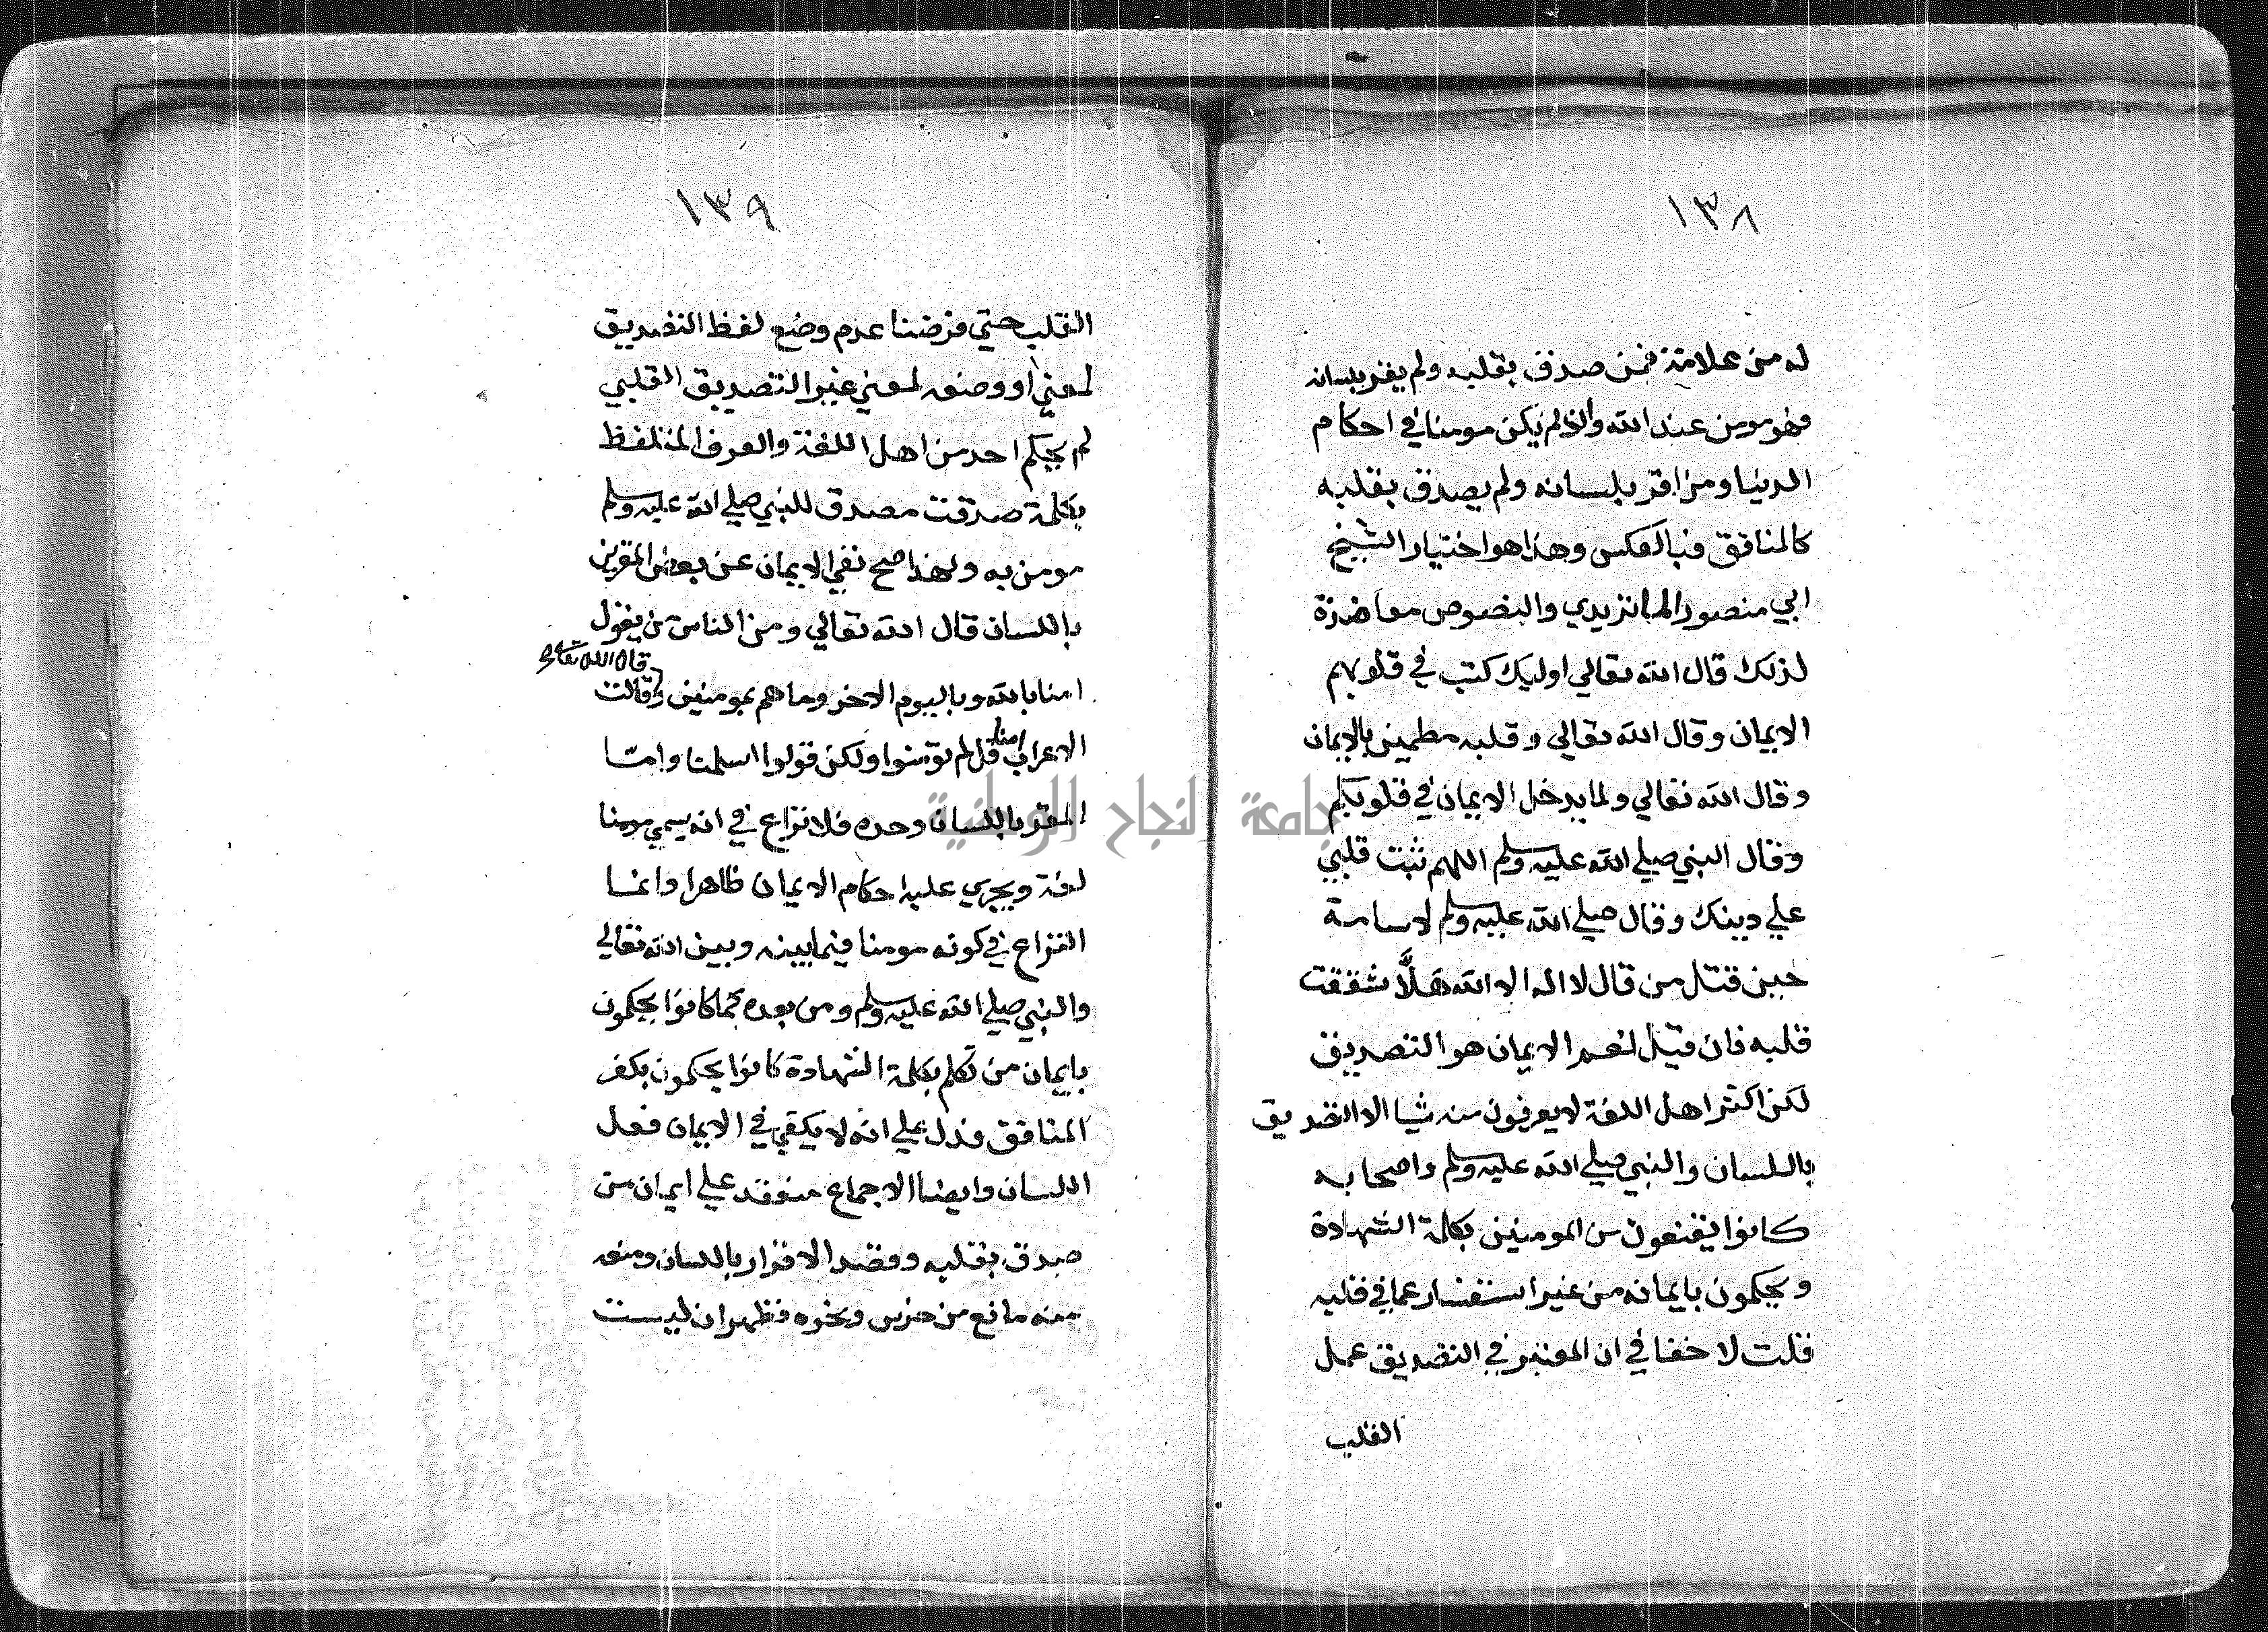 ١٣٨
له من علامة فمن صدق بقلبه ولم يقر بلسانه
فهو مومن عند الله والا لم يكن مومنا في احكام
الدنيا ومن اقر بلسانه ولم يصدق بقلبه
كالمنافق فبالعكس وهذا هو اختيار الشيخ
ابي منصور الماتريدي والنصوص معاضدة
لذلك قال الله تعالي اوليك كتب في قلوبهم
الايمان وقال الله تعالي وقلبه مطمين بالايمان
وقال الله تعالي ولما يدخل الايمان في قلوبكم
وقال النبي صلي الله عليه وسلم اللهم ثبت قلبي
علي دينك وقال صلي الله عليه وسلم لاسامة
حين قتل من قال لا اله الا الله هَلَّا شققت
قلبه فان قيل نعم الايمان هو التصديق
لكن اكثر اهل اللغة لا يعرفون منه شيا الا التصديق
باللسان والنبي صلي الله عليه وسلم واصحابه
كانوا يقنعون من المومنين بكلمة الشهادة
ويحكمون بايمانه من غير استفسار عما في قلبه
قلت لا خفا في ان المعتبر في التصديق عمل
القلب
١٣٩
القلب حتي فرضنا عدم وضع لفظ التصديق
لمعني او وضعه لمعني غير التصديق القلبي
لم يحكم احد من اهل اللغة والعرف المتلفظ
بكلمة صدقت مصدق للنبي صلي الله عليه وسلم
مومن به ولهذا صح نفي الايمان عن بعض المقرين
باللسان قال الله تعالي ومن الناس من يقول
قال الله تعالي
امنا بالله وباليوم الاخر وما هم بمومنين وقالت
امنا
الاعراب قل لم تومنوا ولكن قولوا اسلمنا وامّا
المقر باللسان وحده فلا نزاع في انه يسمي مومنا
لغة ويجري عليه احكام الايمان ظاهرا وانما
النزاع في كونه مومنا فيما بينه وبين الله تعالي
والنبي صلي الله عليه وسلم ومن بعده كما كانوا يحكمون
بايمان من تكلم بكلمة الشهادة كانوا يحكمون بكفر
المنافق فدل علي انه لا يكفي في الايمان فعل
اللسان وايضا الاجماع منعقد علي ايمان من
صدق بقلبه وقصد الاقرار باللسان ومنعه
منه مانع من خرس ونحوه فظهر ان ليست
جامعة النجاح الوطنية